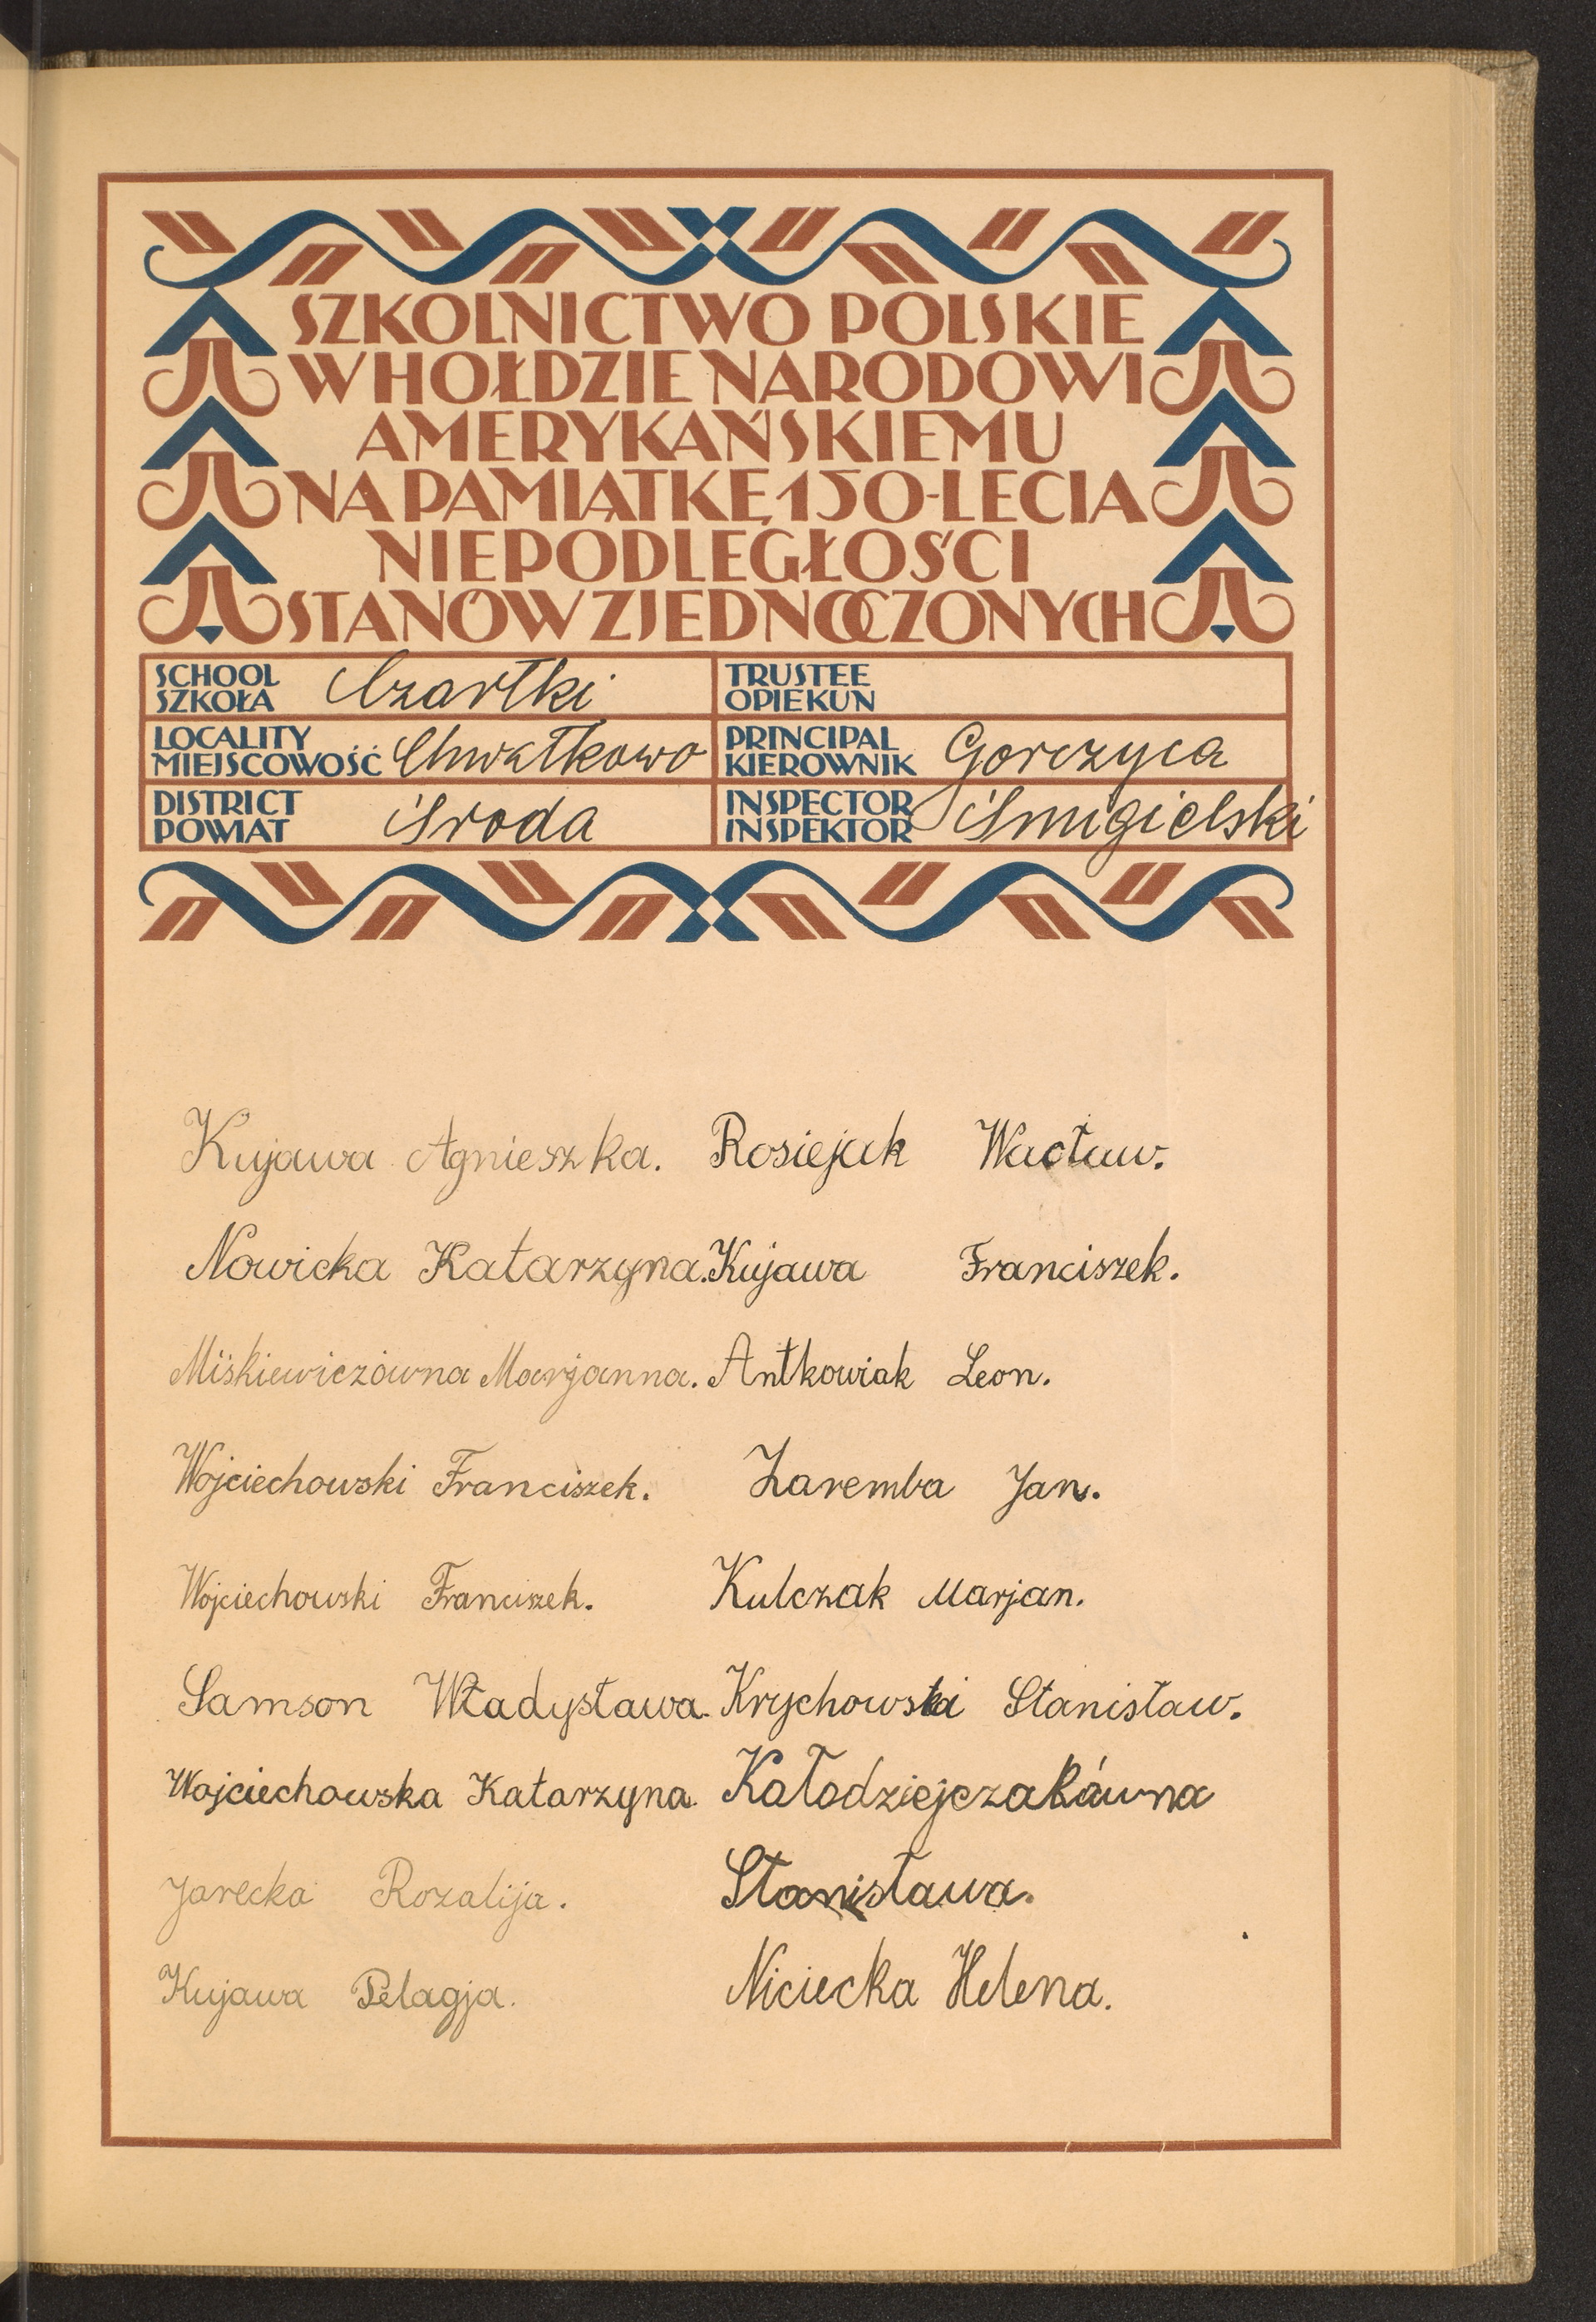 SZKOLNICTWO POLSKIE
W HOŁDZIE NARODOWI
AMERYKAŃSKIEMU
NA PAMIĄTKĘ 150-LECIA
NIEPODLEGŁOŚCI
STANÓW ZJEDNOCZONYCH
SCHOOL
SZKOŁA Czartki
TRUSTEE
OPIEKUN
LOCALITY
MIEJSCOWOŚĆ Chwałkowo
PRINCIPAL
KIEROWNIK Gorczyca
DISTRICT
POWIAT Środa
INSPECTOR
INSPEKTOR Śmigielski
Kujawa Agnieszka.
Nowicka Katarzyna.
Miśkiewiczówna Marjanna.
Wojciechowski Franciszek.
Wojciechowski Franciszek.
Samson Władysława.
Wojciechowska Katarzyna.
Jarecka Rozalija.
Kujawa Pelagja.
Rosiejak Wacław.
Kujawa Franciszek.
Antkowiak Leon.
Zaremba Jan.
Kulczak Marjan.
Krychowski Stanisław.
Kałodziejczakówna
Stanisława.
Niciecka Helena.